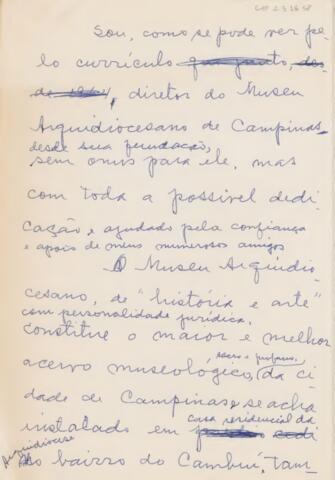 Sou, como se pode ver pe-
lo currículo
de 1964, diretor do Museu
Arquidiocesano de Campinas
desde sua fundação,
sem onus para ele, mas
com toda a possivel dedi
cação e ajudado pela confiança
e apoio de meus numerosos amigos
O Museu Arquidio
cesano, de "história e arte"
com personalidade jurídica,
constitue o maior e melhor
acervo museológico, da ci
dade de Campinas e se acha
casa residencial da
instalado em
Arquidiocese
no bairro do Cambuí, tam